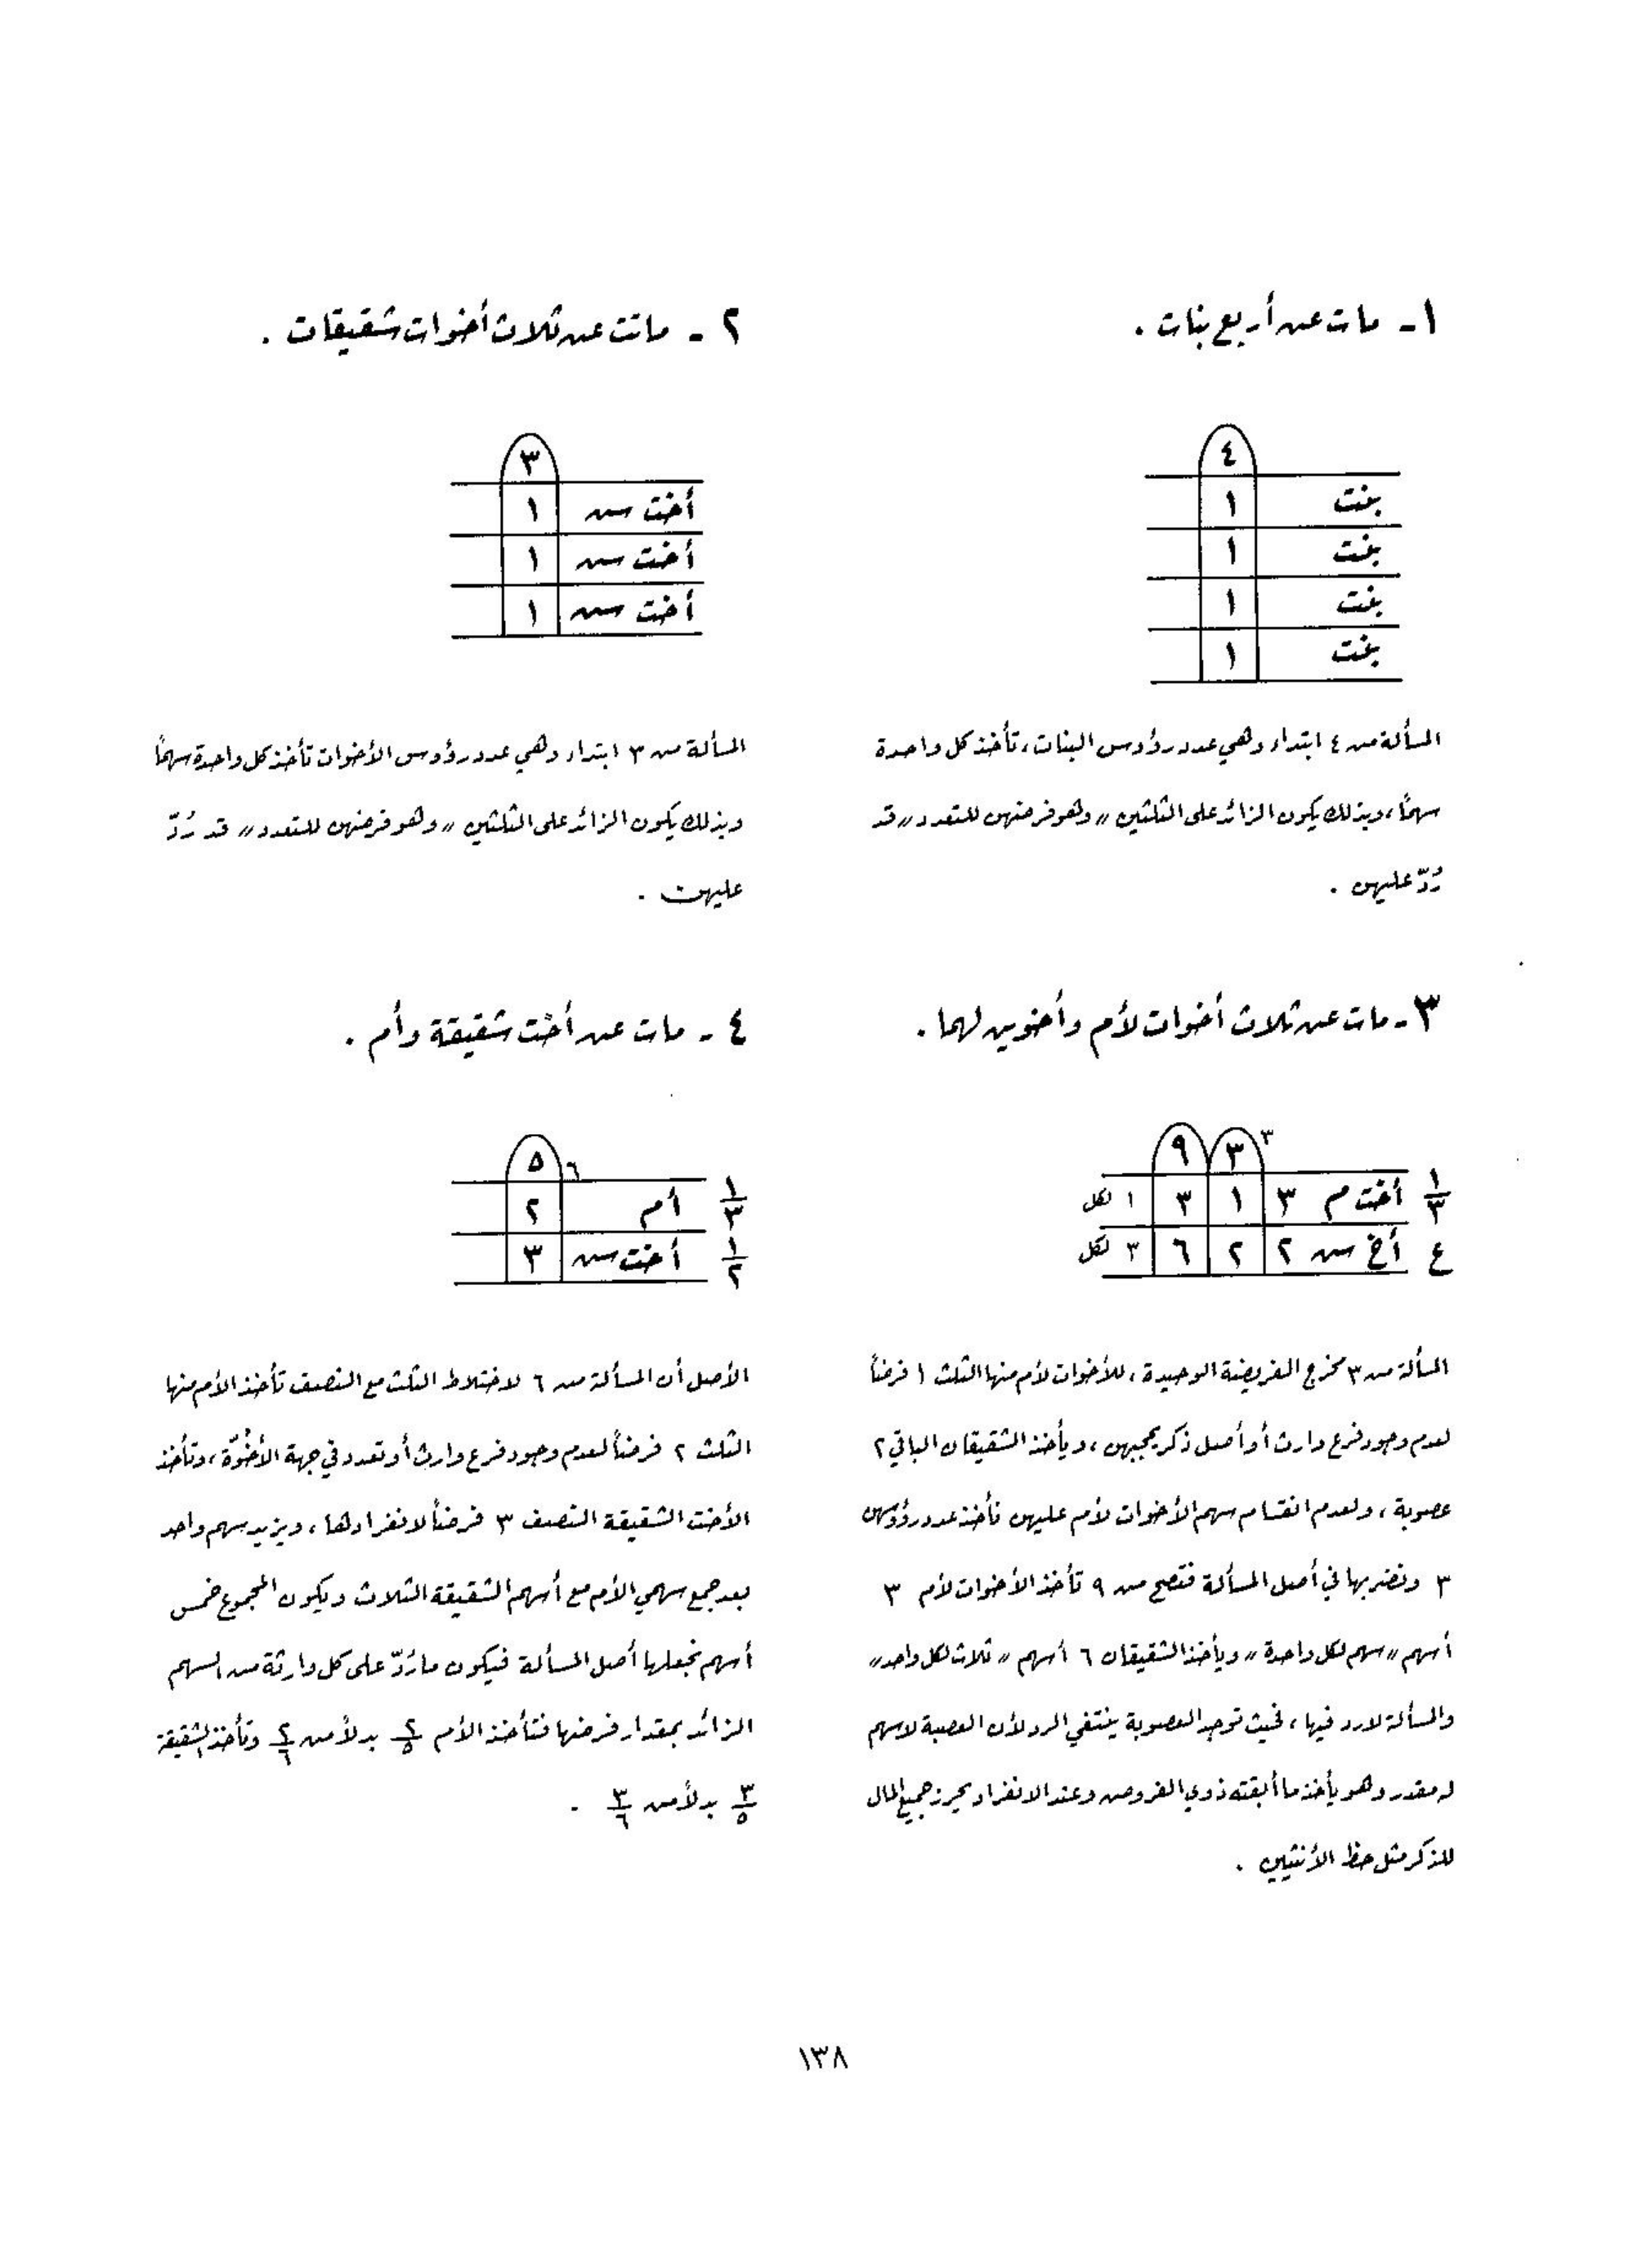 ١ـ مات عن أربع بنات .
٤
بنت ١
بنت ١
بنت ١
بنت ١
المسألة من ٤ ابتداء وهي عدد رؤوس البنات ، تأخذ كل واحدة
سهمًا ، وبذلك يكون الزائد على الثلثين „ وهو فرضهن للتعدد „ قد
رُدّ عليهن .
٢ ـ ماتت عن ثلاث أخوات شقيقات .
٣
أخت س ١
أخت س ١
أخت س ١
المسألة من ٣ ابتداء وهي عدد رؤوس الأخوات تأخذ كل واحدة سهمًا
وبذلك يكون الزائد على الثلثين „ وهو فرضهن للتعدد „ قد رُدّ
عليهن .
٣ ـ مات عن ثلاث أخوات لأم وأخوين لهما .
٣ ٣ ٩
١/٣ أخت م ٣ ١ ٣ ١ لكل
ع أخ س ٢ ٢ ٦ ٣ لكل
المسألة من ٣ مخرج الفريضة الوحيدة ، للأخوات لأم منها الثلث ١ فرضاً
لعدم وجود فرع وارث أو أصل ذكر يحجبهن ، ويأخذ الشقيقان الباقي ٢
عصوبة ، ولعدم انقسام سهم الأخوات لأم عليهن نأخذ عدد رؤوسهن
٣ ونضربها في أصل المسألة فتصح من ٩ تأخذ الأخوات لأم ٣
أسهم „ سهم لكل واحدة „ ويأخذ الشقيقان ٦ أسهم „ ثلاث لكل واحد „
والمسألة لا رد فيها ، فحيث توجد العصوبة ينتفي الرد لأن العصبة لا سهم
له مقدر وهو يأخذ ما أبقته ذوي الفروض وعند الانفراد يحرز جميع المال
للذكر مثل حظ الأنثيين .
٤ ـ مات عن أخت شقيقة وأم .
٦ ٥
١/٣ أم ٢
١/٢ أخت س ٣
الأصل أن المسألة من ٦ لاختلاط الثلث مع النصف تأخذ الأم منها
الثلث ٢ فرضاً لعدم وجود فرع وارث أو تعدد في جهة الأخُوّة ، وتأخذ
الأخت الشقيقة النصف ٣ فرضاً لانفرادها ، ويزيد سهم واحد
بعد جمع سهمي الأم مع أسهم الشقيقة الثلاث ويكون المجموع خمس
أسهم نجعلها أصل المسألة فيكون ما رُدّ على كل وارثة من السهم
الزائد بمقدار فرضها فتأخذ الأم ٢/٥ بدلاً من ٢/٦ وتأخذ الشقيقة
٣/٥ بدلاً من ٣/٦ .
١٣٨